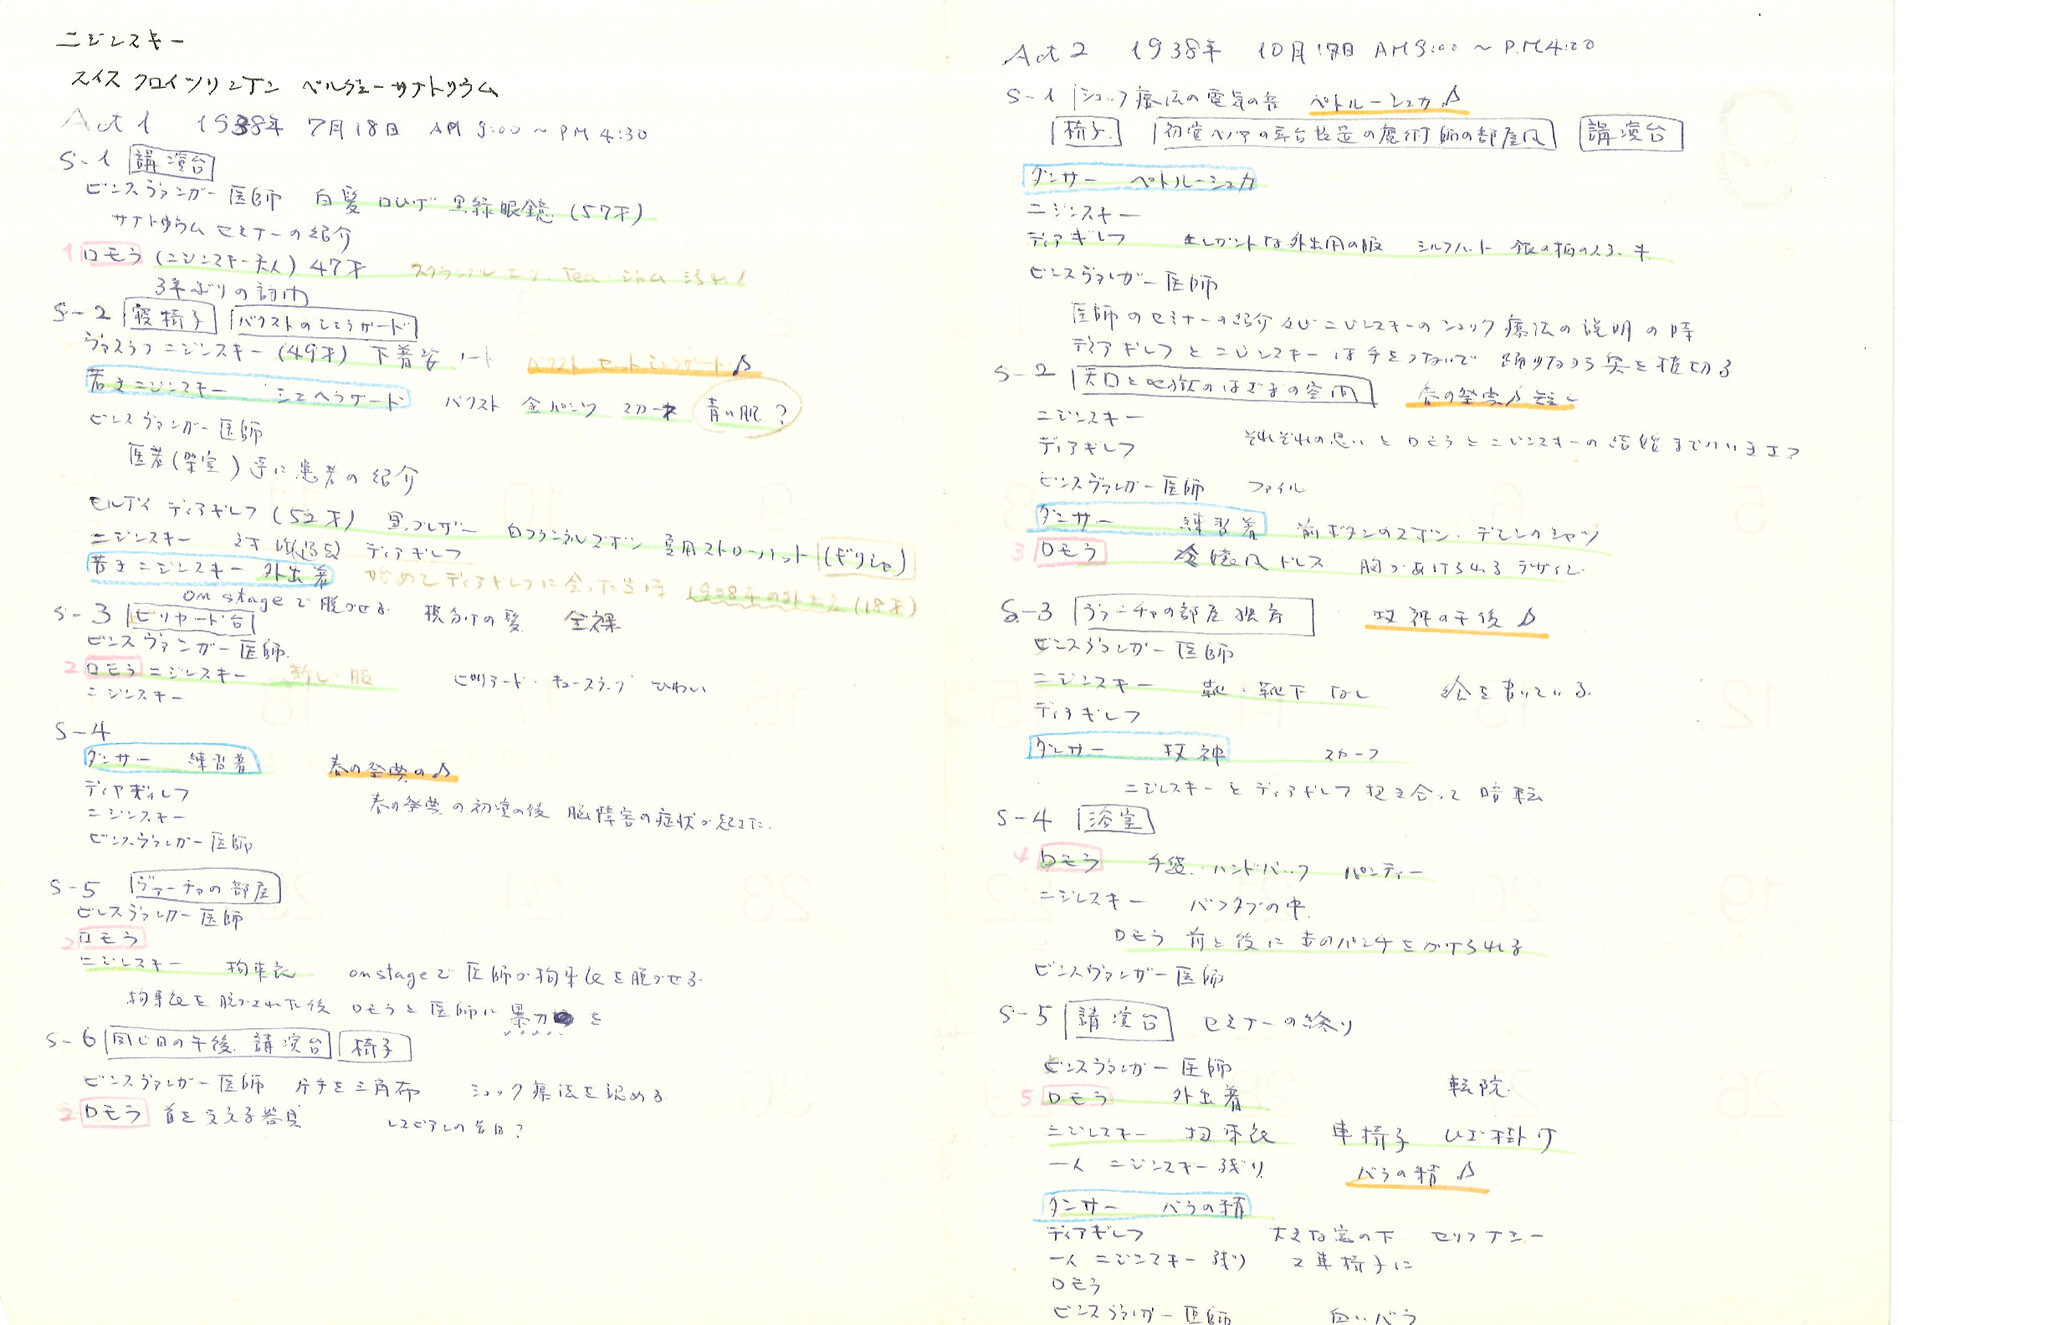 ニジンスキー
スイス クロイツリンゲン ベルヴューサナトリウム
Act 1 1938年 7月18日 AM 9:00 ~ PM 4:30
S-1 講演台
ビンスヴァンガー医師 白髪 口ひげ 黒縁眼鏡 (57才)
サナトリウム セミナーの紹介
1 ロモラ (ニジンスキー夫人) 47才 スクランブルエッグ Tea ジャム
3年ぶりの訪問
S-2 寝椅子 バクストのシェラザード
ヴァスラフ ニジンスキー (49才) 下着姿 ノート バクスト セット シェラザード♪
若きニジンスキー シェヘラザード バクスト 金パンツ スカーフ 青い肌?
ビンスヴァンガー医師
医者(聴室) 達に患者の紹介
セルゲイ ディアギレフ (52才) 黒ブレザー 白フランネルズボン 夏用ストローハット (ギリシャ)
ニジンスキー ディアギレフ
若きニジンスキー 外出着 始めてディアギレフに会った当時 1908年の (18才)
on stageで脱がせる 横分けの髪 全裸
S-3 ビリヤード台
ビンスヴァンガー医師
2 ロモラ ニジンスキー 新しい服 ビリヤード・キュースティック ひわい
ニジンスキー
S-4
ダンサー 練習着 春の祭典の♪
ディヤギレフ
ニジンスキー 春の祭典の初演の後 脳障害の症状が起きた.
ビンスヴァンガー医師
S-5 ヴァーチャの部屋
ビンスヴァンガー医師
2 ロモラ
ニジンスキー 拘束衣 on stageで医師が拘束衣を脱がせる
拘束衣を脱がされた後 ロモラと医師に暴力を
S-6 同じ日の午後 講演台 椅子
ビンスヴァンガー医師 片手を三角布 ショック療法を認める
2 ロモラ 首を支える器具 レズビアンの告白?
Act 2 1938年 10月17日 AM 9:00 ~ P.M 4:00
S-1 ショック療法の電気の音 ペトルーシュカ♪
椅子 初演ベノアの舞台装置の魔術師の部屋風 講演台
ダンサー ペトルーシュカ
ニジンスキー
ディアギレフ エレガントな外出用の服 シルクハット 銀の柄のステッキ
ビンスヴァンガー医師
医師のセミナーの紹介及びニジンスキーのショック療法の説明の時
ディアギレフとニジンスキーは手をつないで 踊りながら奥を横切る
S-2 天国と地獄のはざまの空間 春の祭典♪
ニジンスキー
ディアギレフ それぞれの思いとロモラとニジンスキーの結婚まで
ビンスヴァンガー医師 ファイル
ダンサー 練習着 前ボタンのズボン・デモンのシャツ
3 ロモラ ドレス 胸があけられるデザイン
S-3 ヴァーチャの部屋 独房 牧神の午後♪
ビンスヴァンガー医師
ニジンスキー 靴・靴下なし 絵を書いている
ディアギレフ
ダンサー 牧神 スカーフ
ニジンスキーとディアギレフ 抱き合って暗転
S-4 浴室
4 ロモラ 手袋 ハンドバック パンティー
ニジンスキー バスタブの中
ロモラ 前と後に赤のパンチをかけられる
ビンスヴァンガー医師
S-5 講演台 セミナーの終り
ビンスヴァンガー医師 転院
5 ロモラ 外出着
ニジンスキー 拘束衣 車椅子 ひざ掛け
一人 ニジンスキー残り バラの精♪
ダンサー バラの精
ディアギレフ 大きな窓の下 セリフナシー
一人 ニジンスキー残り 車椅子に
ロモラ
ビンスヴァンガー医師 白いバラ